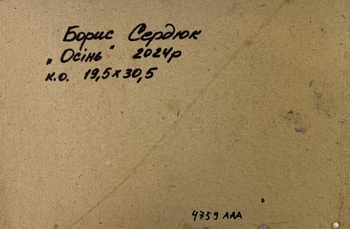 Борис Сердюк
„Осінь" 2024р
к.о. 19,5x30,5
4759 ЛАА